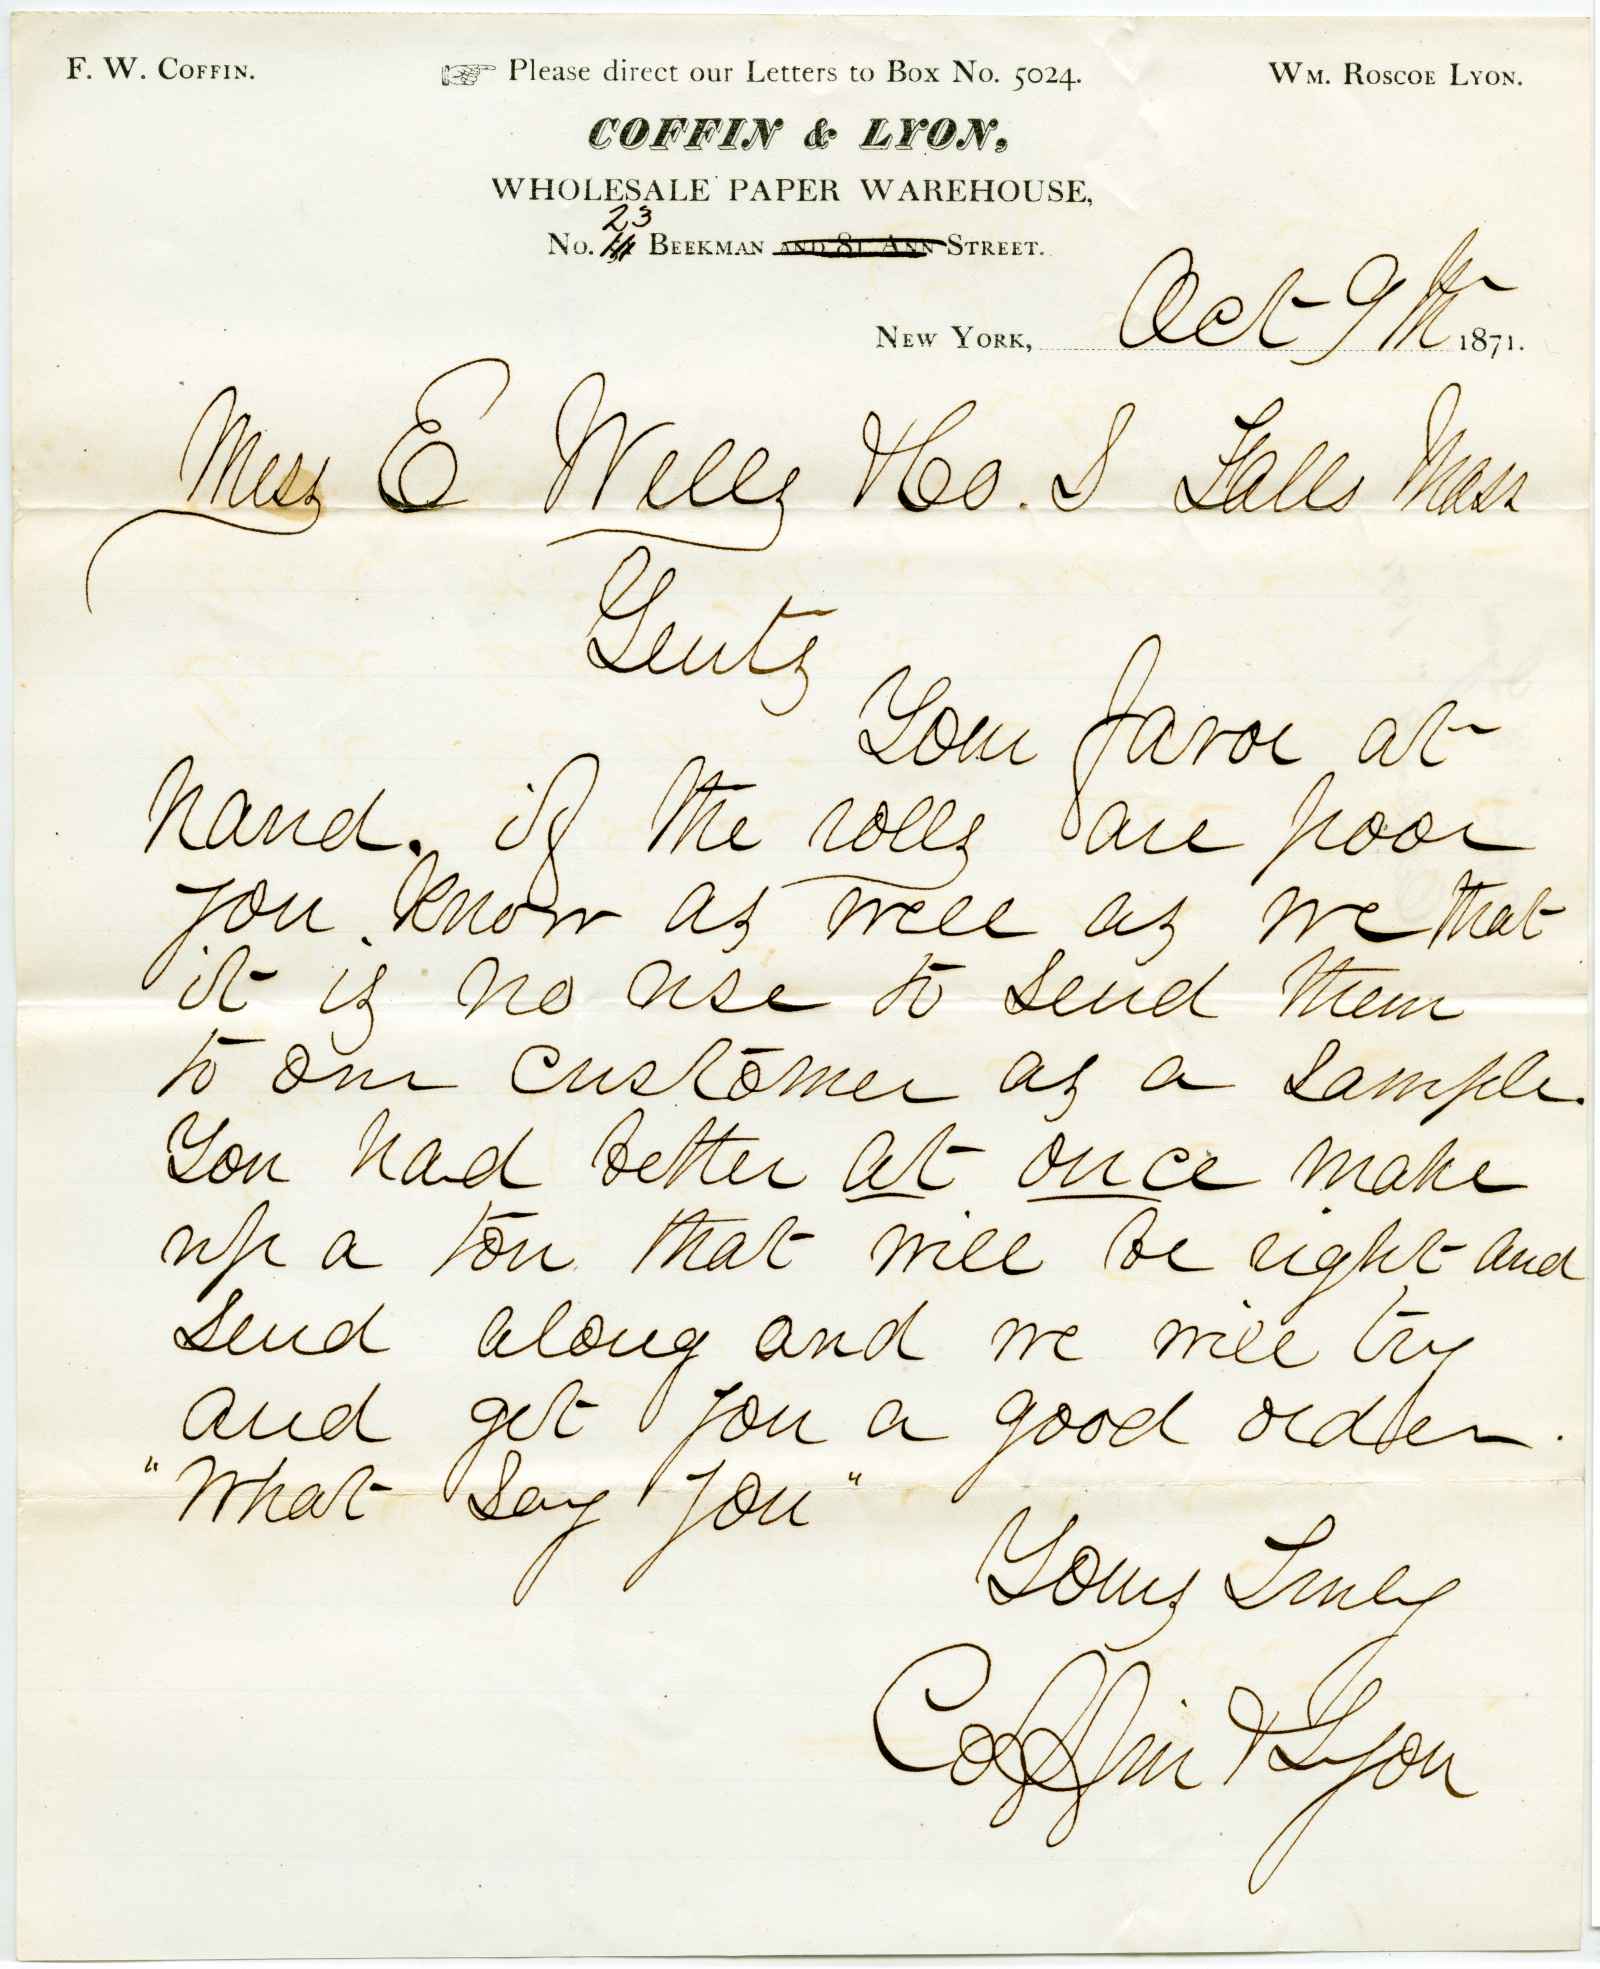 F. W. COFFIN.
Please direct our Letters to Box No. 5024.
WM. ROSCOE LYON.
COFFIN & LYON,
WHOLESALE PAPER WAREHOUSE,
23
No. BEEKMAN AND 81 ANN STREET.
NEW YORK, Oct 9th 1871.
Mess E Wells & Co. S Falls Mass
Gents
Your favor at
hand. if the rolls are poor
you know as well as we that
it is no use to send them
to our customer as a sample.
You had better at once make
up a ton that will be right and
send along and we will try
and get you a good order.
"What say you"
Yours Truly
Coffin & Lyon